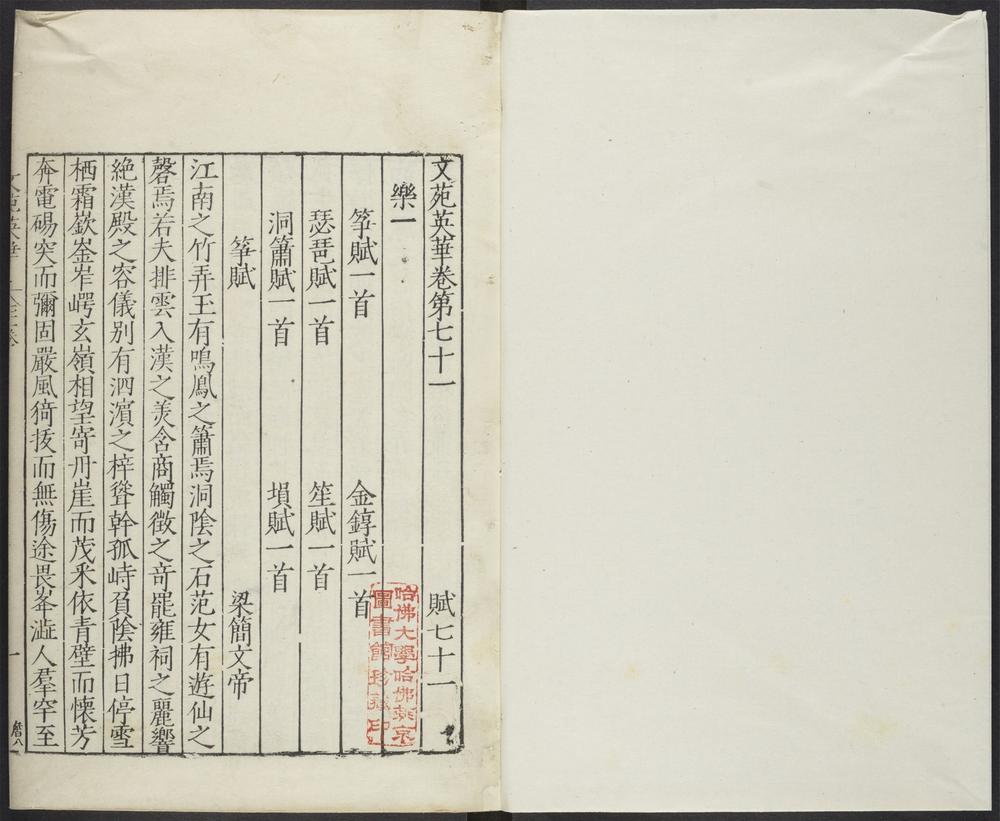 文苑英華卷第七十一 賦七十一
樂一
箏賦一首 金錞賦一首
瑟琶賦一首 笙賦一首
洞簫賦一首 塤賦一首
箏賦 梁簡文帝
江南之竹弄玉有鳴鳳之簫焉洞陰之石范女有遊仙之
磬焉若夫排雲入漢之羙含商觸徵之奇罷雍祠之麗響
絶漢殿之容儀别有泗濵之梓聳幹孤峙負陰拂日停雪
栖霜嶔崟岝崿玄嶺相望寄丹崖而茂釆依青壁而懷芳
奔電碭突而彌固嚴風掎拔而無傷途畏峯澁人羣罕至
一
哈佛大學哈佛燕京
圖書館珍藏印